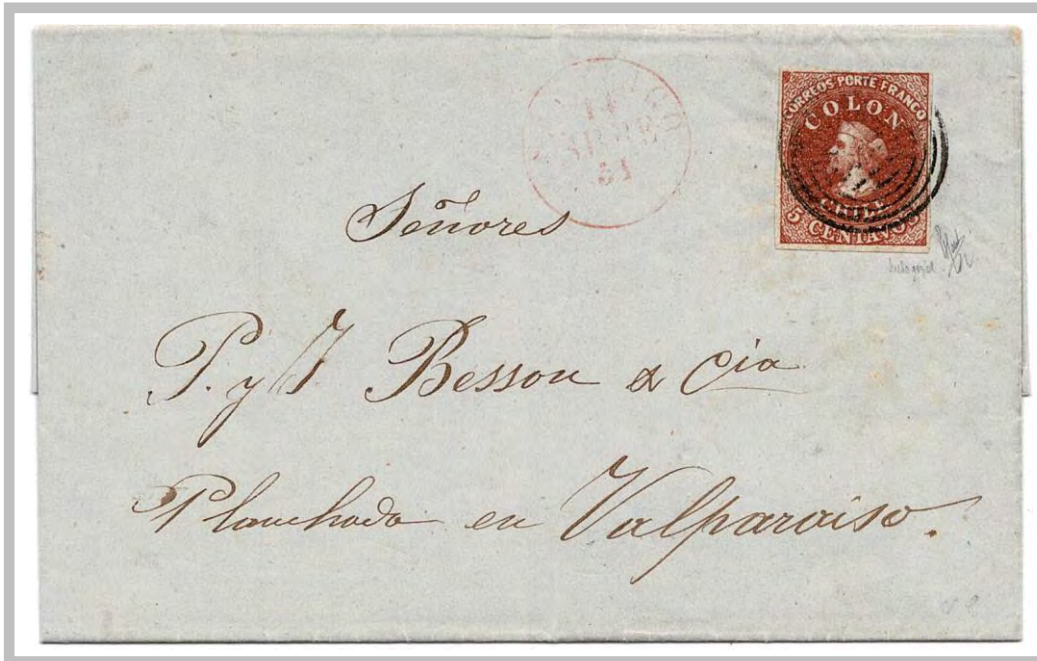 CORREOS PORTE FRANCO
COLON
CHILE
5 CENTAVOS
Señores
P. y J Besson & Cia
Planchada en Valparaiso.